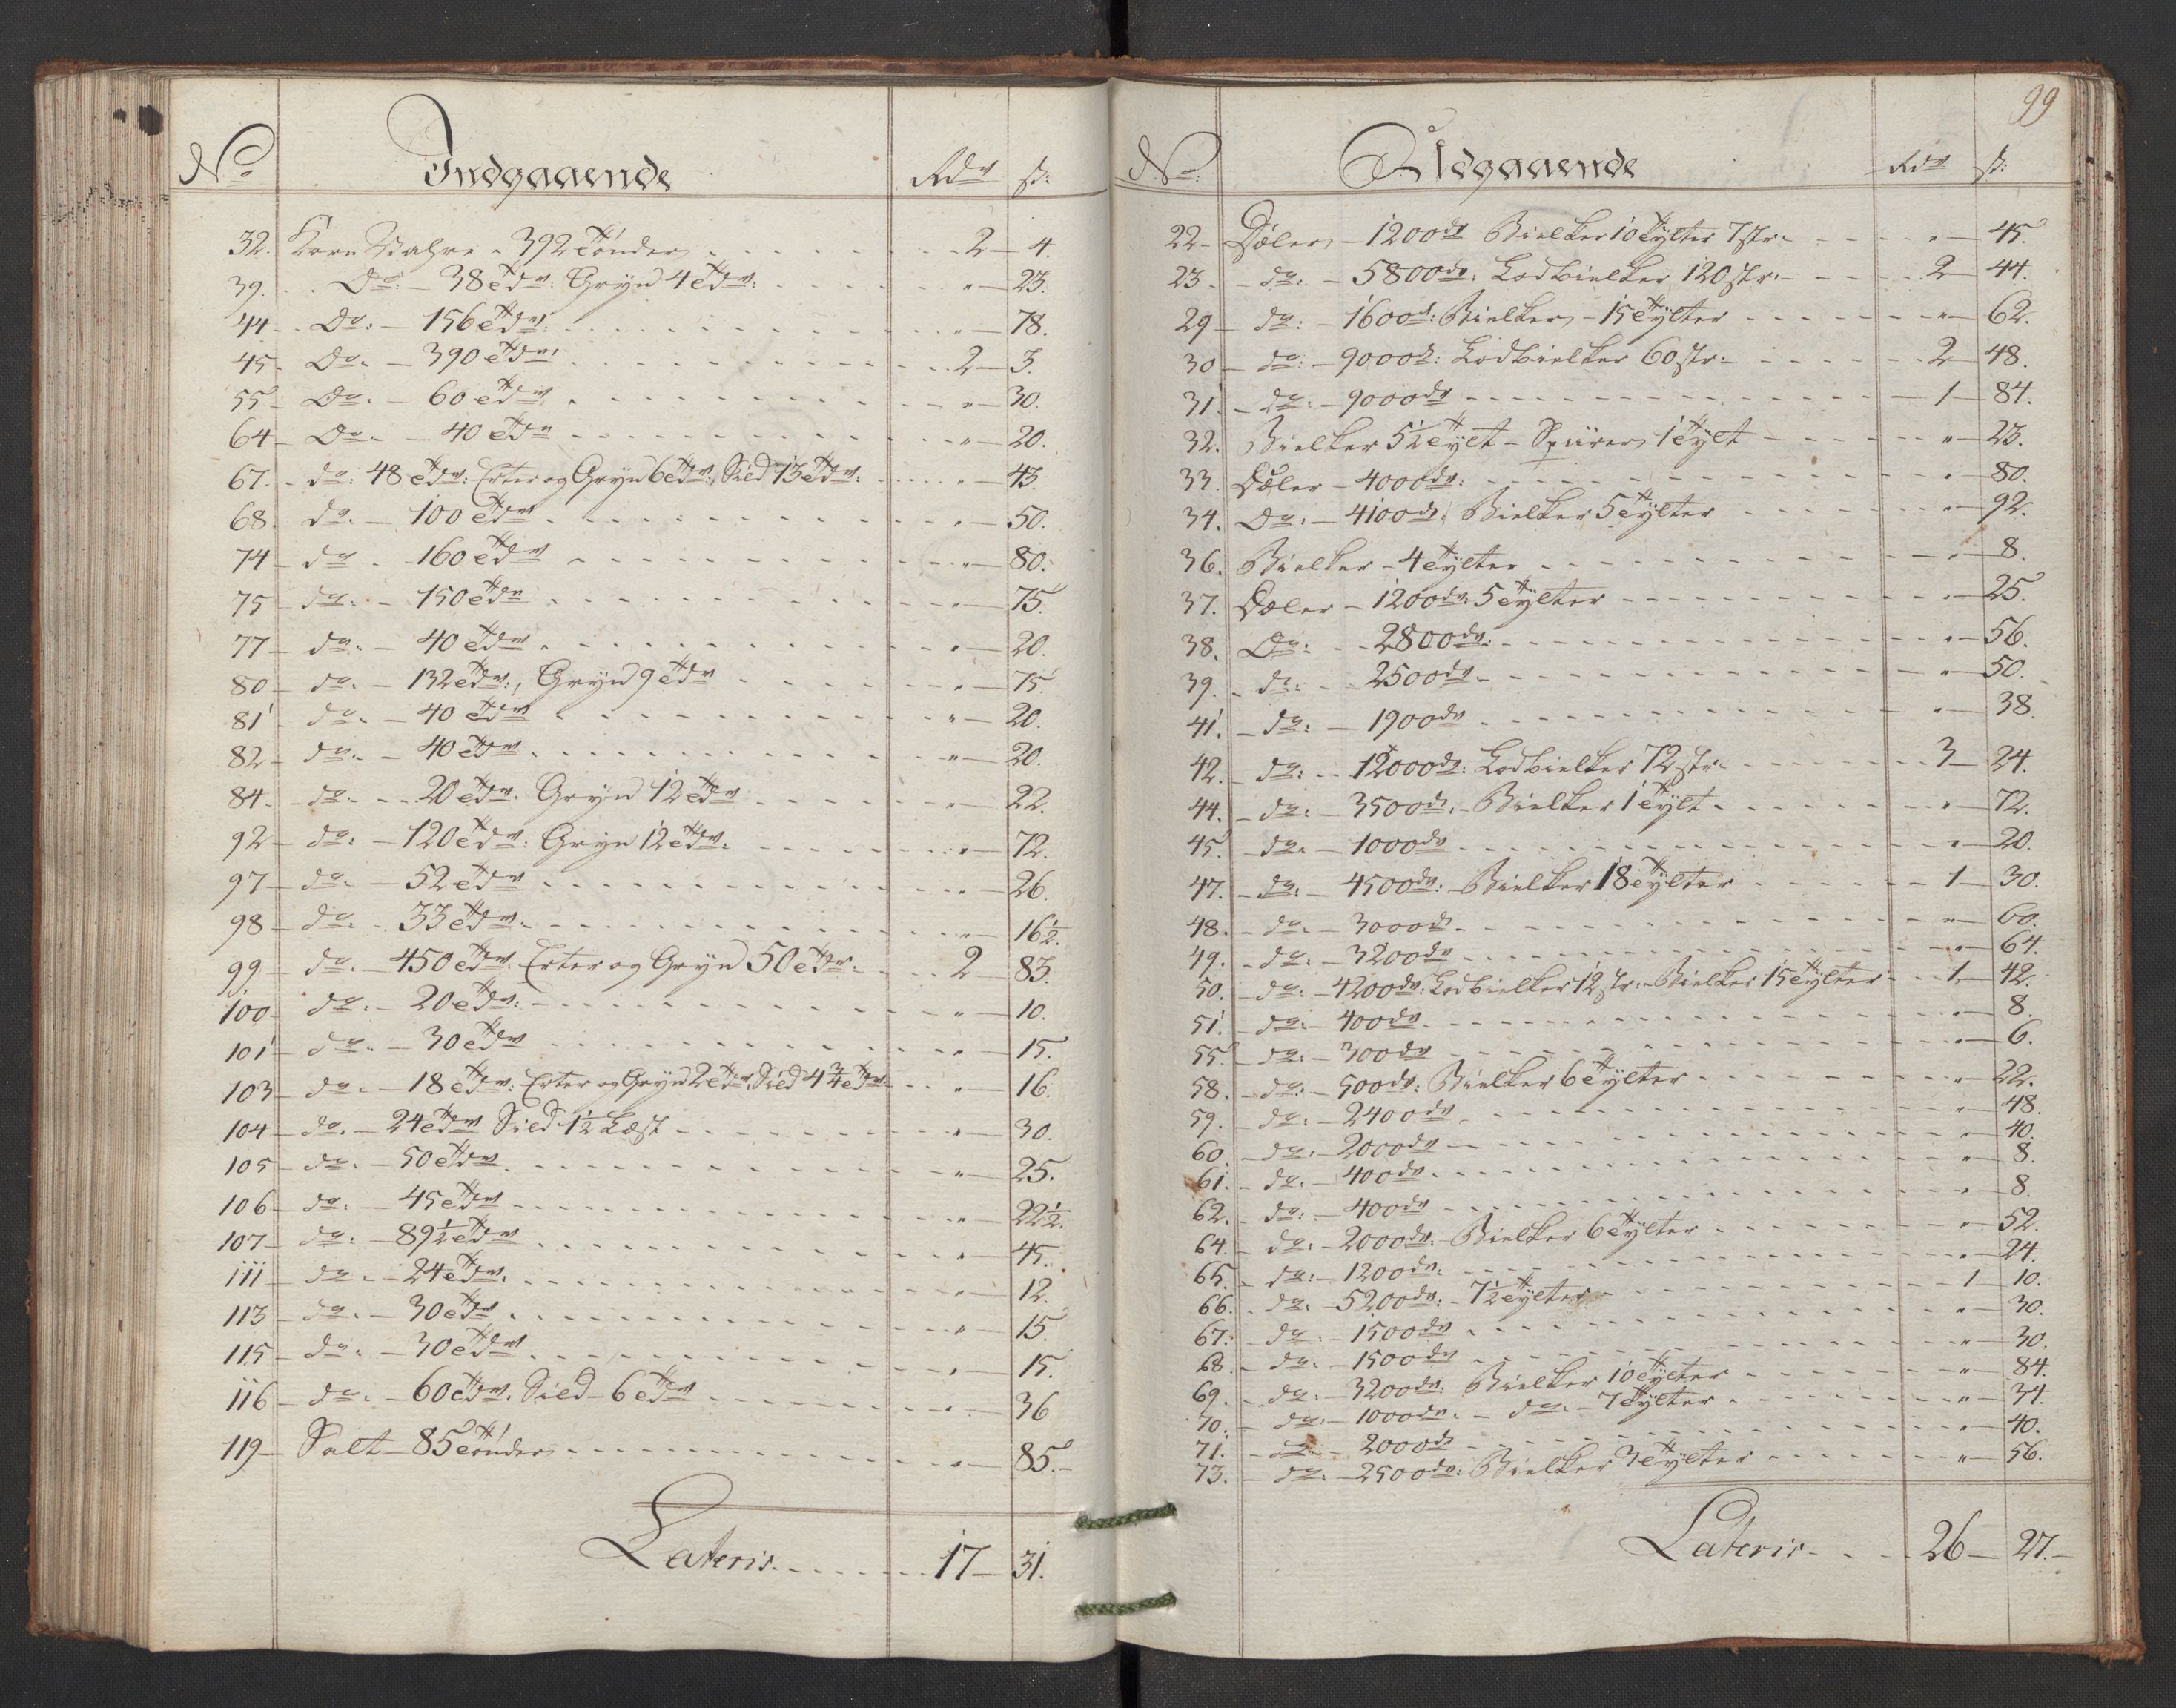 No Indgaaende Rdr ß:
32. Korn Wahre - 392 Tønder 2 - 4.
39. Do: - 38 Tdr: Gryn 4 Tdr: " - 23.
44 - Do: - 156 Tdr: " - 78.
45 - Do. - 390 Tdr: 2 - 3.
55 - Do. - 60 Tdr " - 30.
64 - Do. - 40 Tdr " - 20.
67. - do: 48 Tdr: Erter og Gryn 6 Tdr:, Sild 13 Tdr: " - 43.
68. do. - 100 Tdr " - 50.
74 - do - 160 Tdr " - 80.
75 - do. - 150 Tdr " - 75.
77 - do. - 40 Tdr " - 20.
80 - do. - 132 Tdr:, Gryn 9 Tdr " - 75.
81 - do. - 40 Tdr " - 20.
82 - do. - 40 Tdr " - 20.
84. - do. - 20 Tdr. Gryn 12 Tdr " - 22.
92 - do: - 120 Tdr: Gryn 12 Tdr. " - 72.
97 - do. - 52 Tdr " - 26.
98 - do. - 33 Tdr. " - 16½.
99 - do. - 450 Tdr. Erter og Gryn 50 Tdr. 2 - 83.
100 - do. - 20 Tdr: " - 10.
101 - do. - 30 Tdr " - 15.
103 - do. - 18 Tdr: Erter og Gryn 2 Tdr, Sild 4¾ Tdr " - 16.
104 - do. - 24 Tdr Sild 1½ Læst " - 30.
105 - do. - 50 Tdr " - 25.
106 - do. - 45 Tdr " - 22½.
107 - do: - 89½ Tdr " - 45.
111 - do. - 24 Tdr. " - 12.
113 - do. - 30 Tdr " - 15.
115 - do. - 30 Tdr " - 15.
116 - do. - 60 Tdr. Sild - 6 Tdr " - 36
119 - Salt - 85 Tønder " - 85. -
Lateris 17 - 31.
99
No: Udgaaende Rdr ß:
22 - Dæler - 1200 dr Bielker 10 Tylter 7 str: " - 45.
23. - do. - 5800 dr: Lodbielker 120 str: 2 - 44.
29 - do: - 1600 dr: Bielker - 15 Tylter " - 62.
30 - do: - 9000 dr: Lodbielker 60 str: 2 - 48.
31. - do. - 9000 dr 1 - 84.
32. Bielker 5½ Tylt - Spürer 1 Tylt " - 23.
33. Dæler - 4000 dr: " - 80.
34. Do: - 4100 dr. Bielker 5 Tylter " - 92.
36. Bielker - 4 Tylter " - 8.
37. Dæler - 1200 dr: 5 Tylter " - 25.
38. Do: - 2800 dr: " - 56.
39. - do: - 2500 dr. " - 50.
41. - do: - 1900 dr " - 38.
42. - do: - 12000 dr: Lodbielker 72 str. 3 - 24.
44. - do: - 3500 dr. - Bielker 1 Tylt. " - 72.
45. - do. - 1000 dr " - 20.
47. - do: - 4500 dr: Bielker 18 Tylter 1 - 30.
48. - do. - 3000 dr " - 60.
49. - do: - 3200 dr " - 64.
50. - do: - 4200 dr: Lodbielker 12 str: - Bielker 15 Tylter 1 - 42.
51. - do: - 400 dr " - 8.
55. - do: - 300 dr " - 6.
58. - do: - 500 dr: Bielker 6 Tylter " - 22.
59. - do: - 2400 dr " - 48.
60. - do. - 2000 dr " - 40.
61. - do: - 400 dr. " - 8.
62. - do: - 400 dr " - 8.
64. - do: - 2000 dr. Bielker 6 Tylter " - 52.
65. - do: - 1200 dr. " - 24.
66. - do: - 5200 dr: - 7½ Tylter 1 - 10.
67. - do: - 1500 dr " - 30.
68. - do. - 1500 dr " - 30.
69. - do: - 3200 dr: Bielker 10 Tylter " - 84.
70. - do: - 1000 dr. - do. - 7 Tylter " - 34.
71. - do. - 2000 dr " - 40.
73. - do. - 2500 dr: Bielker 3 Tylter " - 56.
Lateris 26 - 27. -